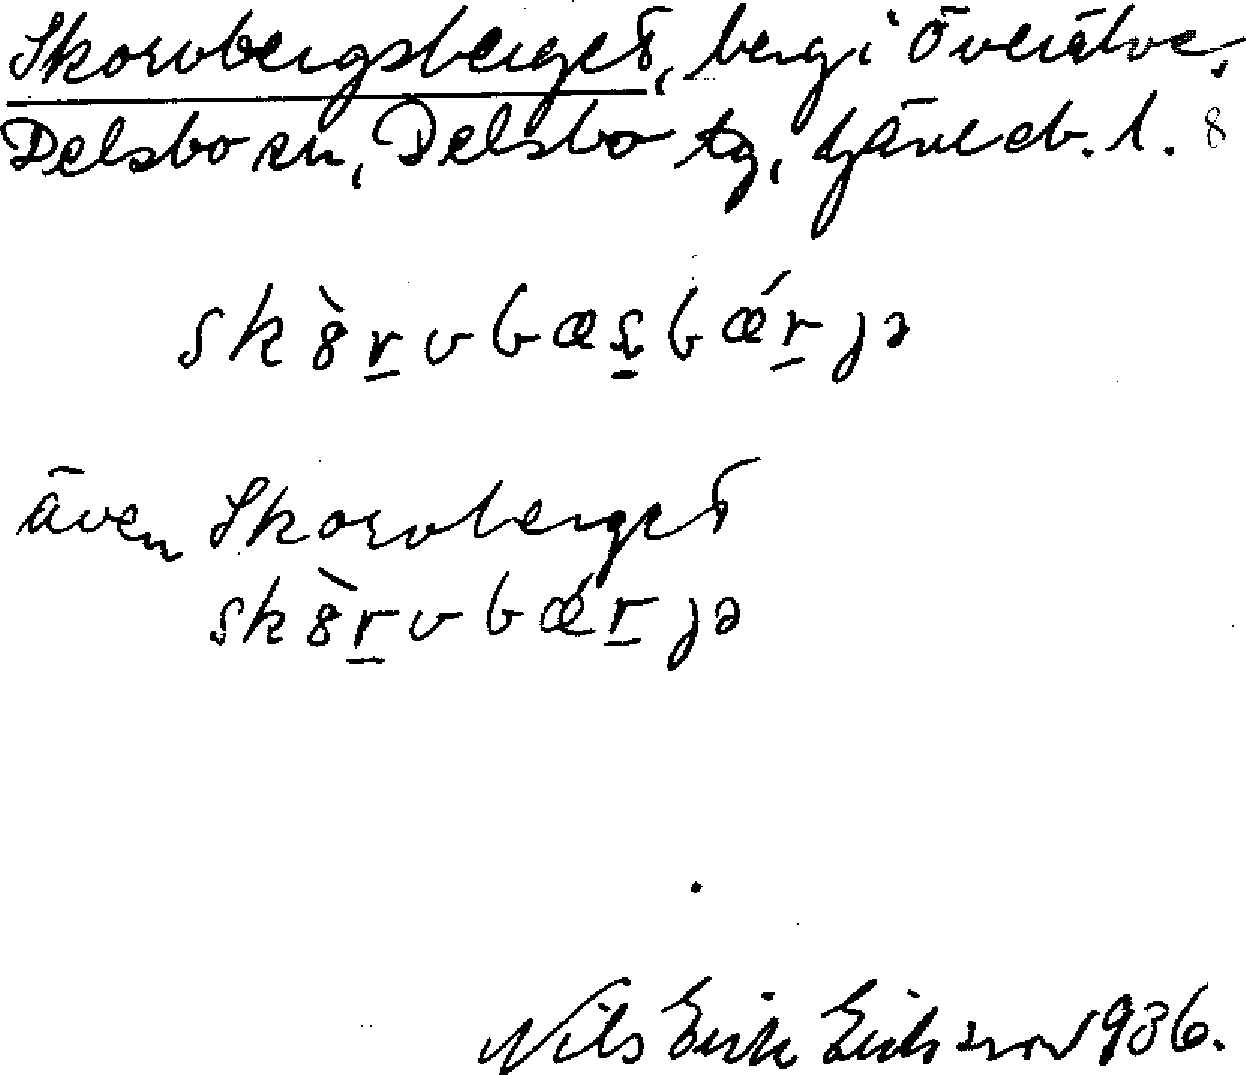 Skorvbergsberget, berg i Överälve,
Delsbo sn, Delsbo tg, Gävleb. l. 8
sk8̀r̲vbæs̲bǽr̲jə
även Skorvberget
sk8̀r̲vbǽr̲jə
Nils Erik Eriksson 1936.